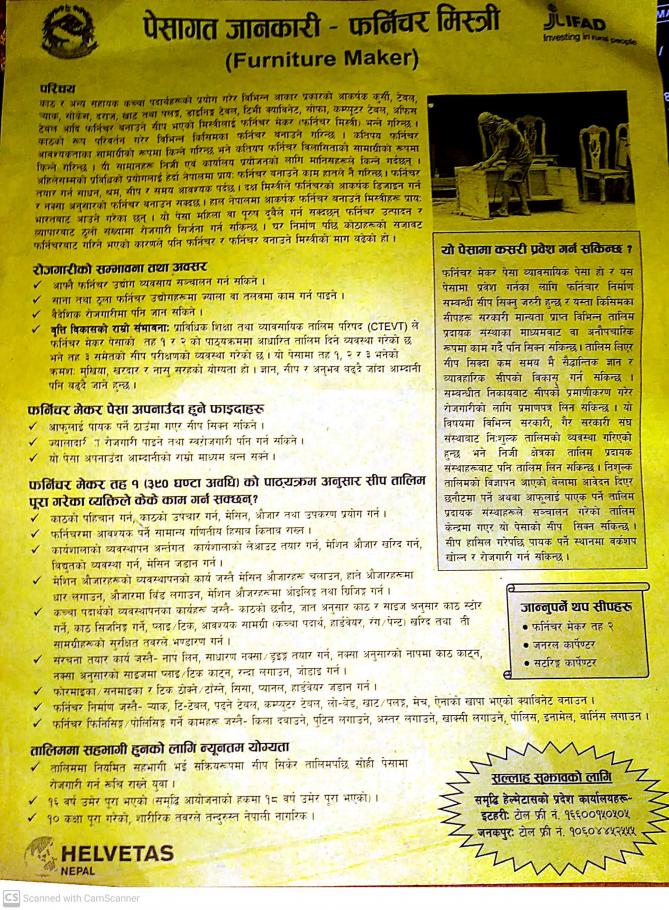 पेसागत जानकारी - फर्निचर मिस्त्री
(Furniture Maker)
JLIFAD
Investing in rural people
परिचय
काठ र अन्य सहायक कच्चा पदार्थहरूको प्रयोग गरेर विभिन्न आकार प्रकारको आकर्षक कुर्सी, टेबल,
र्‍याक, सोकेस, दराज, खाट तथा पलङ्ग, डाइनिङ्ग टेबल, टिभी क्याविनेट, सोफा, कम्प्युटर टेबल, अफिस
टेबल आदि फर्निचर बनाउने सीप भएको मिस्त्रीलाई फर्निचर मेकर (फर्निचर मिस्त्री) भन्ने गरिन्छ ।
काठको रूप परिवर्तन गरेर विभिन्न किसिमका फर्निचर बनाउने गरिन्छ । कतिपय फर्निचर
आवश्यकताका सामाग्रीको रूपमा किन्ने गरिन्छ भने कतिपय फर्निचर विलासिताको सामाग्रीको रूपमा
किन्ने गरिन्छ । यी सामानहरू निजी एवं कार्यालय प्रयोजनको लागि मानिसहरूले किन्ने गर्दछन् ।
अहिलेसम्मको प्रविधिको प्रयोगलाई हेर्दा नेपालमा प्रायः फर्निचर बनाउने काम हातले नै गरिन्छ । फर्निचर
तयार गर्न साधन, श्रम, सीप र समय आवश्यक पर्दछ । दक्ष मिस्त्रीले फर्निचरको आकर्षक डिजाइन गर्न
र नक्सा अनुसारको फर्निचर बनाउन सक्दछ । हाल नेपालमा आकर्षक फर्निचर बनाउने मिस्त्रीहरू प्रायः
भारतबाट आउने गरेका छन् । यो पेसा महिला वा पुरुष दुवैले गर्न सक्दछन् फर्निचर उत्पादन र
व्यापारबाट ठूलो संख्यामा रोजगारी सिर्जना गर्न सकिन्छ । घर निर्माण पछि कोठाहरूको सजावट
फर्निचरबाट गरिने भएको कारणले पनि फर्निचर र फर्निचर बनाउने मिस्त्रीको माग बढेको हो ।
रोजगारीको सम्भावना तथा अवसर
✓ आफ्नै फर्निचर उद्योग व्यवसाय सञ्चालन गर्न सकिने ।
✓ साना तथा ठूला फर्निचर उद्योगहरूमा ज्याला वा तलबमा काम गर्न पाइने ।
✓ वैदेशिक रोजगारीमा पनि जान सकिने ।
✓ वृत्ति विकासको राम्रो संभावनाः प्राविधिक शिक्षा तथा व्यावसायिक तालिम परिषद (CTEVT) ले
फर्निचर मेकर पेसाको तह १ र २ को पाठ्यक्रममा आधारित तालिम दिने व्यवस्था गरेको छ
भने तह ३ समेतको सीप परीक्षणको व्यवस्था गरेको छ । यो पेसामा तह १, २ र ३ भनेको
क्रमशः मुखिया, खरदार र नासु सरहको योग्यता हो । ज्ञान, सीप र अनुभव बढ्दै जाँदा आम्दानी
पनि बढ्दै जाने हुन्छ ।
फर्निचर मेकर पेसा अपनाउँदा हुने फाइदाहरू
✓ आफुलाई पायक पर्ने ठाउँमा गएर सीप सिक्न सकिने ।
✓ ज्यालादारी रोजगारी पाइने तथा स्वरोजगारी पनि गर्न सकिने ।
✓ यो पेसा अपनाउँदा आम्दानीको राम्रो माध्यम बन्न सक्ने ।
फर्निचर मेकर तह १ (३९० घण्टा अवधि) को पाठ्यक्रम अनुसार सीप तालिम
पूरा गरेका व्यक्तिले केके काम गर्न सक्छन्?
✓ काठको पहिचान गर्न, काठको उपचार गर्न, मेसिन, औजार तथा उपकरण प्रयोग गर्न ।
✓ फर्निचरमा आवश्यक पर्ने सामान्य गणितीय हिसाब किताब राख्न ।
✓ कार्यशालाको व्यवस्थापन अन्तर्गत कार्यशालाको लेआउट तयार गर्न, मेशिन औजार खरिद गर्न,
विद्युतको व्यवस्था गर्न, मेसिन जडान गर्न ।
✓ मेशिन औजारहरूको व्यवस्थापनको कार्य जस्तै मेसिन औजारहरू चलाउन, हाते औजारहरूमा
धार लगाउन, औजारमा विंड लगाउन, मेशीन औजारहरूमा ओइलिङ्ग तथा ग्रिजिङ्ग गर्न ।
✓ कच्चा पदार्थको व्यवस्थापनका कार्यहरू जस्तै- काठको छनौट, जात अनुसार काठ र साइज अनुसार काठ स्टोर
गर्ने, काठ सिजनिङ गर्ने, प्लाई/टिक, आवश्यक सामग्री (कच्चा पदार्थ, हार्डवेयर, रंग/पेन्ट) खरिद तथा ती
सामग्रीहरूको सुरक्षित तवरले भण्डारण गर्न ।
✓ संरचना तयार कार्य जस्तै- नाप लिन, साधारण नक्सा/ड्रइङ्ग तयार गर्न, नक्सा अनुसारको नापमा काठ काट्न,
नक्सा अनुसारको साइजमा प्लाइ/टिक काट्न, रन्दा लगाउन, जोडाइ गर्न ।
✓ फोरमाइका/सनमाइका र टिक ठोक्ने/टाँस्ने, सिसा, प्यानल, हार्डवेयर जडान गर्न ।
✓ फर्निचर निर्माण जस्तै- र्‍याक, टि-टेबल, पढ्ने टेबल, कम्प्युटर टेबल, लो-बेड, खाट/पलङ्ग, मेच, ऐनाको खापा भएको क्याविनेट बनाउन ।
✓ फर्निचर फिनिसिङ्ग/पोलिसिङ्ग गर्ने कामहरू जस्तै- किला दबाउने, पुटिन लगाउने, अस्तर लगाउने, खाक्सी लगाउने, पोलिस, इनामेल, वार्निस लगाउन ।
तालिममा सहभागी हुनको लागि न्यूनतम योग्यता
✓ तालिममा नियमित सहभागी भई सक्रियरूपमा सीप सिकेर तालिमपछि सोही पेसामा
रोजगारी गर्न रूचि राख्ने युवा ।
✓ १६ वर्ष उमेर पूरा भएको (समृद्धि आयोजनाको हकमा १८ वर्ष उमेर पूरा भएको) ।
✓ १० कक्षा पूरा गरेको, शारीरिक तवरले तन्दुरुस्त नेपाली नागरिक ।
यो पेसामा कसरी प्रवेश गर्न सकिन्छ ?
फर्निचर मेकर पेसा व्यावसायिक पेसा हो र यस
पेसामा प्रवेश गर्नका लागि फर्निचार निर्माण
सम्वन्धी सीप सिक्नु जरुरी हुन्छ र यस्ता किसिमका
सीपहरू सरकारी मान्यता प्राप्त विभिन्न तालिम
प्रदायक संस्थाका माध्यमबाट वा अनौपचारिक
रूपमा काम गर्दै पनि सिक्न सकिन्छ । तालिम लिएर
सीप सिक्दा कम समय मै सैद्धान्तिक ज्ञान र
व्यावहारिक सीपको विकास गर्न सकिन्छ ।
सम्वन्धीत निकायबाट सीपको प्रमाणीकरण गरेर
रोजगारीको लागि प्रमाणपत्र लिन सकिन्छ । यो
विषयमा विभिन्न सरकारी, गैर सरकारी संघ
संस्थाबाट निःशुल्क तालिमको व्यवस्था गरिएको
हुन्छ भने निजी क्षेत्रका तालिम प्रदायक
संस्थाहरूबाट पनि तालिम लिन सकिन्छ । निशुल्क
तालिमको विज्ञापन आएको बेलामा आवेदन दिएर
छनौटमा पर्ने अथवा आफुलाई पाएक पर्ने तालिम
प्रदायक संस्थाहरूले सञ्चालन गरेको तालिम
केन्द्रमा गएर यो पेसाको सीप सिक्न सकिन्छ ।
सीप हासिल गरेपछि पायक पर्ने स्थानमा वर्कशप
खोल्न र रोजगारी गर्न सकिन्छ ।
जान्नुपर्ने थप सीपहरू
• फर्निचर मेकर तह २
• जनरल कार्पेण्टर
• सटरिङ्ग कार्पेण्टर
सल्लाह सुझावको लागि
समृद्धि हेल्भेटासको प्रदेश कार्यालयहरू-
इटहरी: टोल फ्री नं. १६६००१५०५०५
जनकपुर: टोल फ्री नं. १०६०४४५२५५५
HELVETAS
NEPAL
CS Scanned with CamScanner